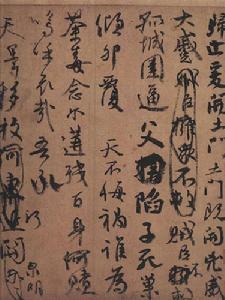 歸止爰開土門土門既開凶威
大蹙賊臣擁衆不救賊臣不
孤城圍逼父陷子死巢
傾卵覆天不悔禍誰為
荼毒念爾遘殘百身何贖
嗚乎哀哉吾承
天澤移牧河關